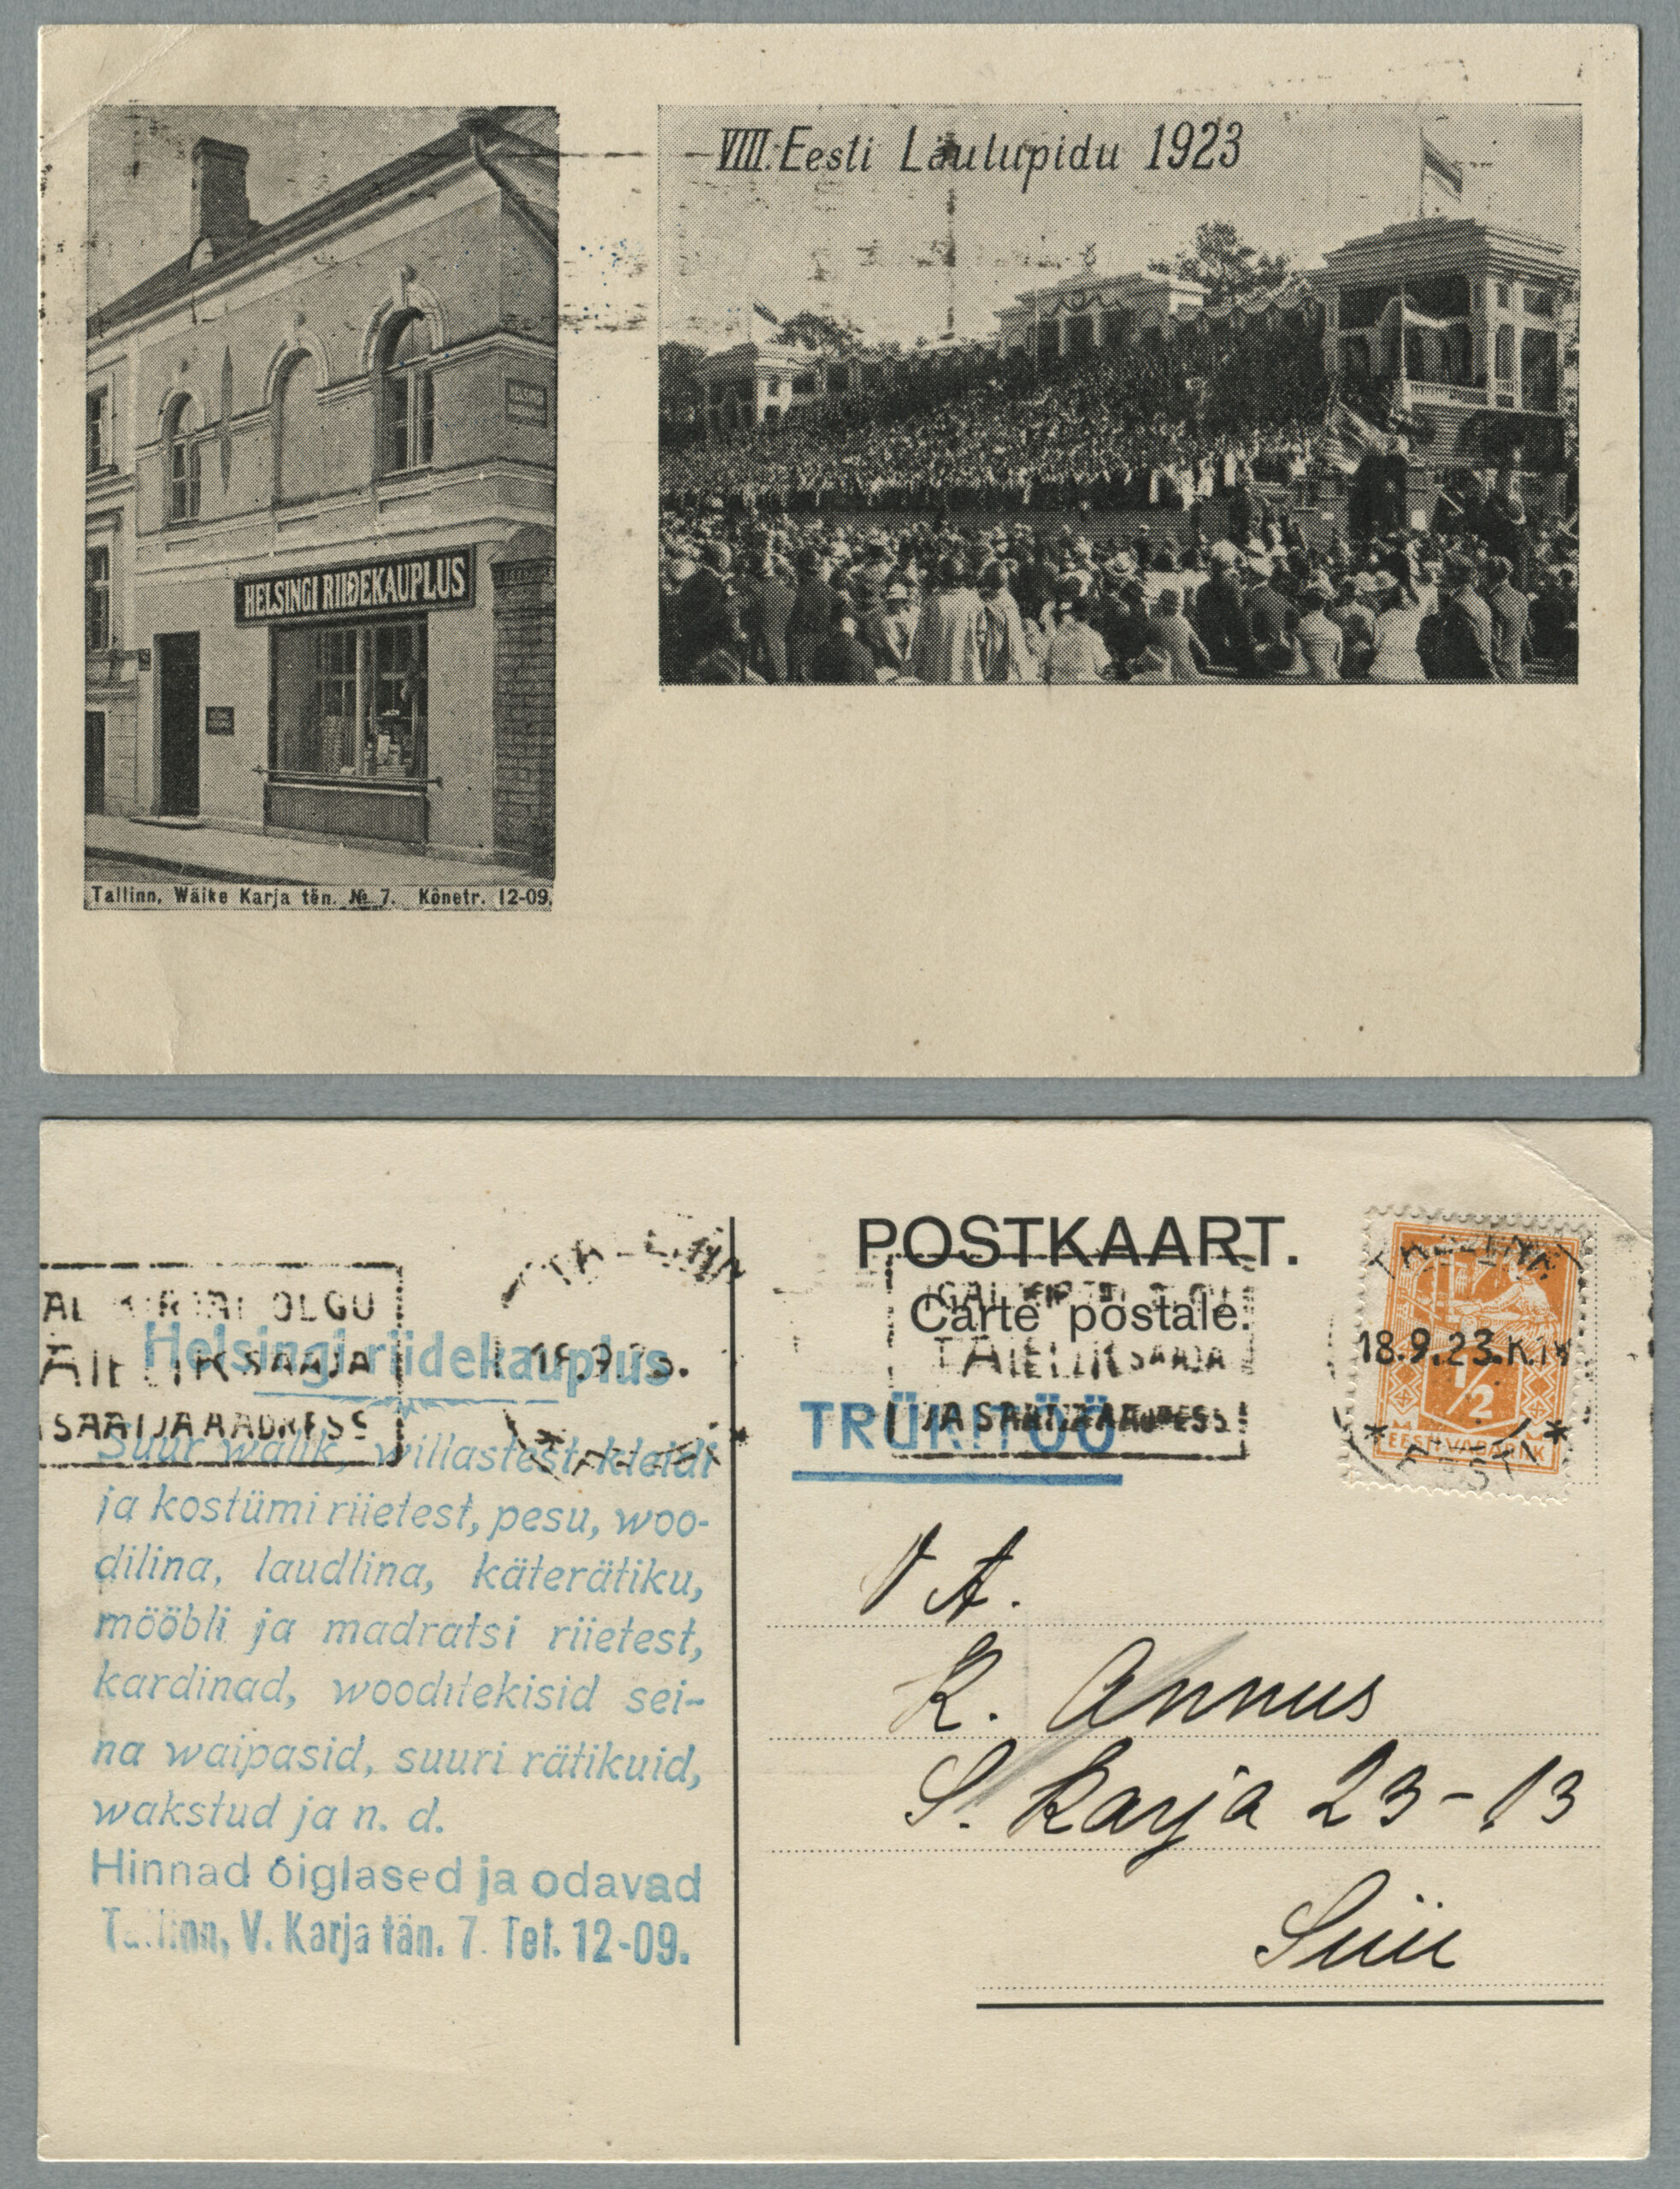 VIII. Eesti Laulupidu 1923
HELSINGI RIIDEKAUPLUS
Tallinn, Wäike Karja tän. № 7. Kõnetr. 12-09.
POSTKAART.
Carte postale.
TALLINN
18.9.23.K.IV
* EESTI *
1/2
EESTI VABARIIK
IGAL KIRJAL OLGU
TÄIELIK SAAJA
JA SAATJA AADRESS
TRÜKITÖÖ
AL KIRJAL OLGU
ÄIELIK SAAJA
SAATJA AADRESS
TALLINN
18.9.23.
Helsingi riidekauplus
Suur walik, willastest kleidi
ja kostümi riietest, pesu, woo-
dilina, laudlina, käterätiku,
mööbli ja madratsi riietest,
kardinad, wooditekisid sei-
na waipasid, suuri rätikuid,
wakstud ja n. d.
Hinnad õiglased ja odavad
Tallinn, V. Karja tän. 7. Tel. 12-09.
V A.
K. Annus
S. Karja 23-13
Siin